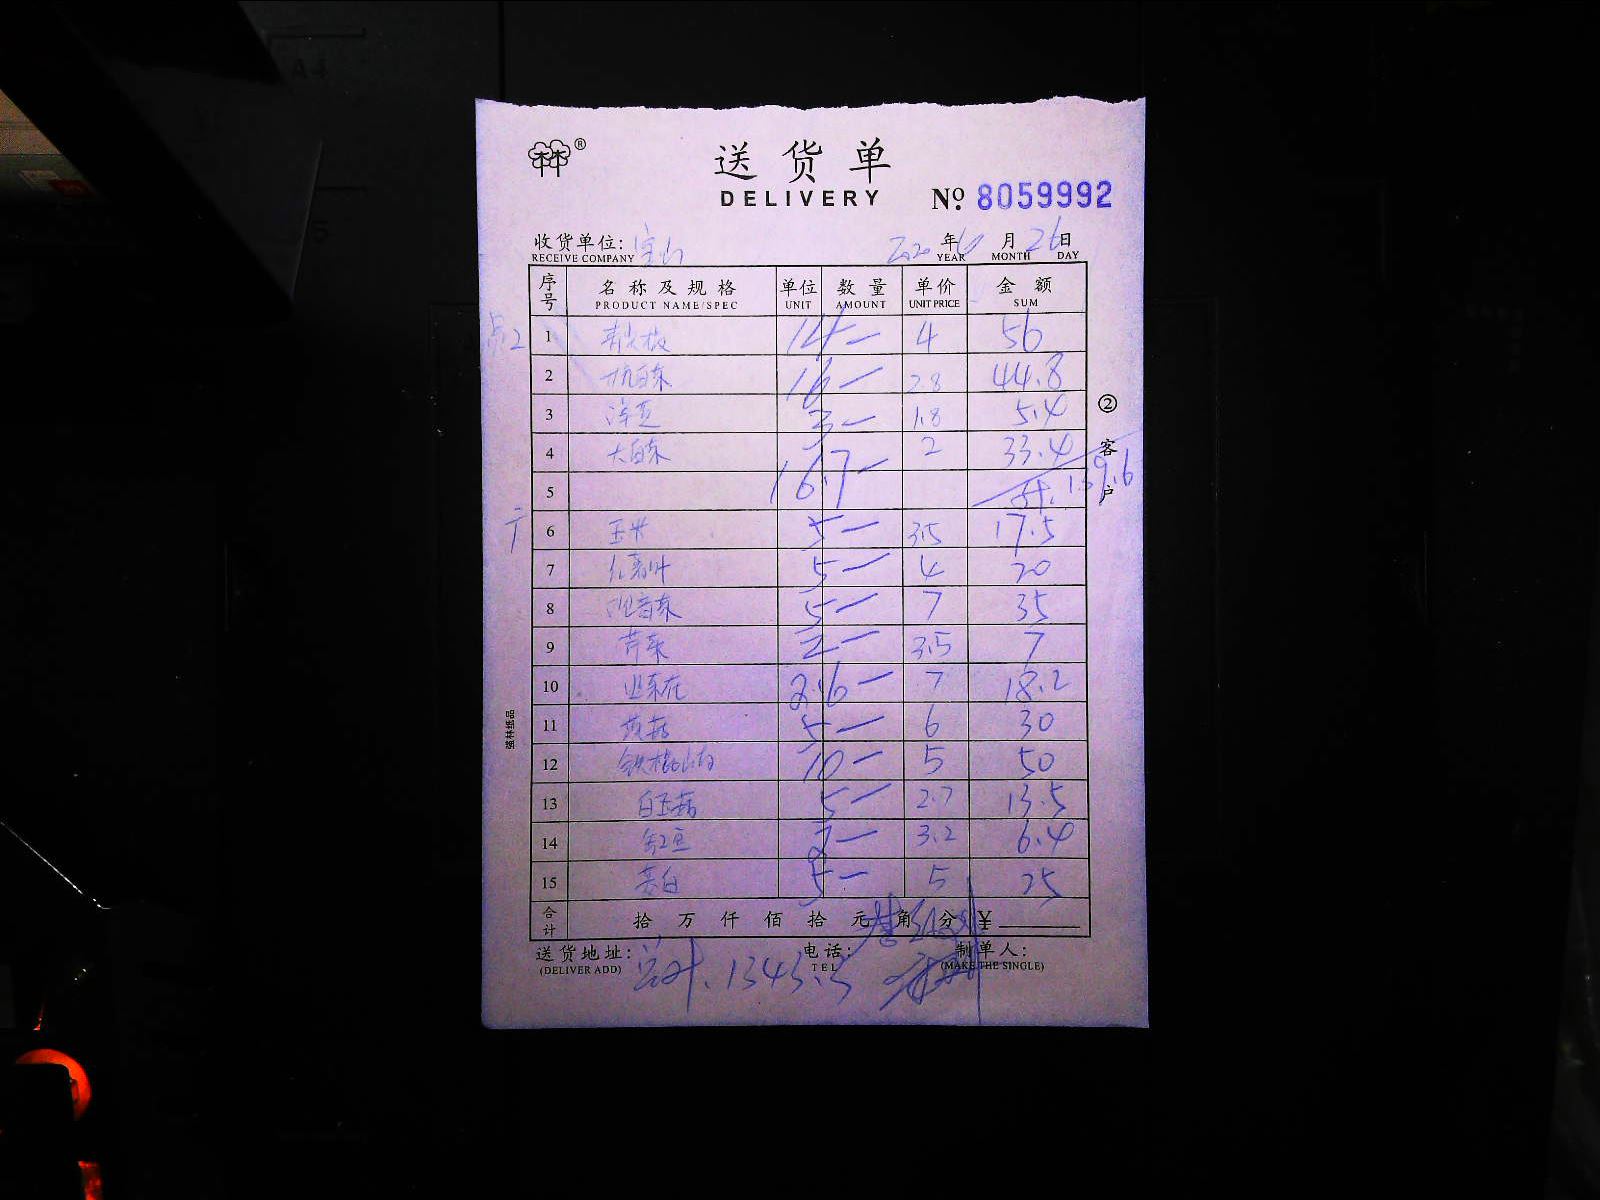 林®
送货单
DELIVERY
№ 8059992
收货单位: 宝山 2020年6月26日
RECEIVE COMPANY YEAR MONTH DAY
序号 名称及规格 单位 数量 单价 金额
PRODUCT NAME/SPEC UNIT AMOUNT UNIT PRICE SUM
点2 1 青尖椒 14 — 4 56
2 杭白菜 16 — 2.8 44.8
3 洋豆 3 — 1.8 5.4
4 大白菜 16.7 — 2 33.4
5 计. 139.6
6 玉米 5 — 3.5 17.5
7 红薯叶 5 — 4 20
8 观音菜 5 — 7 35
9 芹菜 2 — 3.5 7
10 2.6 — 7 18.2
11 5 — 6 30
12 铁棍山药 10 — 5 50
13 白玉菇 5 — 2.7 13.5
14 2 — 3.2 6.4
15 茭白 5 — 5 25
合计 拾万仟佰拾元角分 ¥
送货地址: 电话: 制单人:
(DELIVER ADD) TEL (MAKE THE SINGLE)
总计. 1343.3
②客户
强林纸品